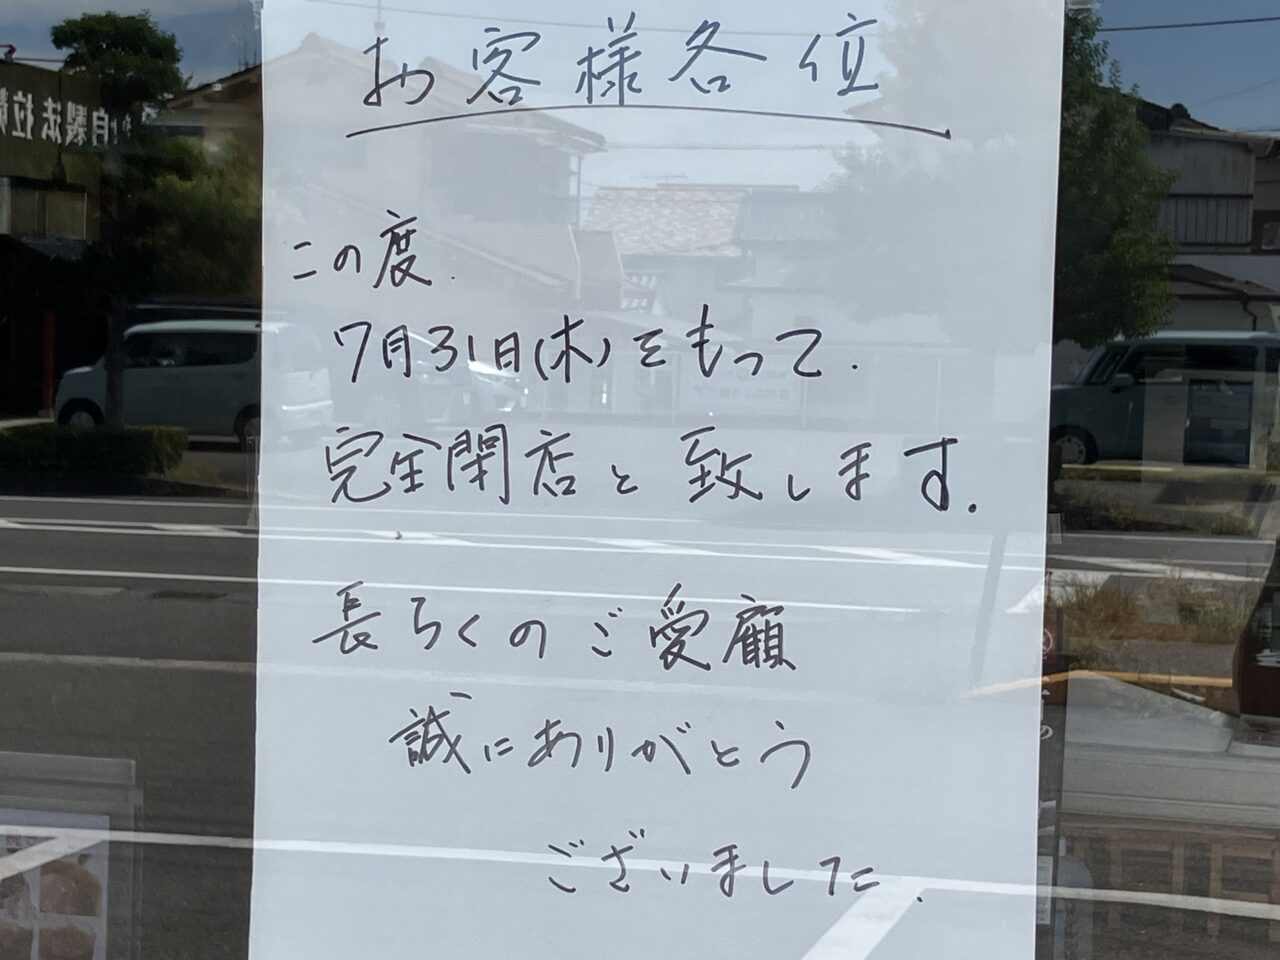 お客様各位
この度.
7月31日(木)をもって.
完全閉店と致します.
長らくのご愛顧
誠にありがとう
ございました.